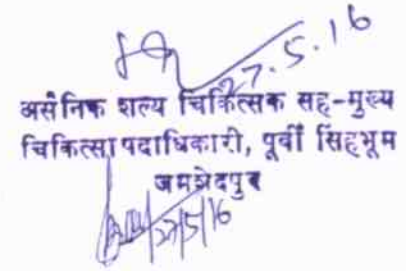 27.5.16
असैनिक शल्य चिकित्सक सह-मुख्य
चिकित्सा पदाधिकारी, पूर्वी सिंहभूम
जमशेदपुर
27/5/16